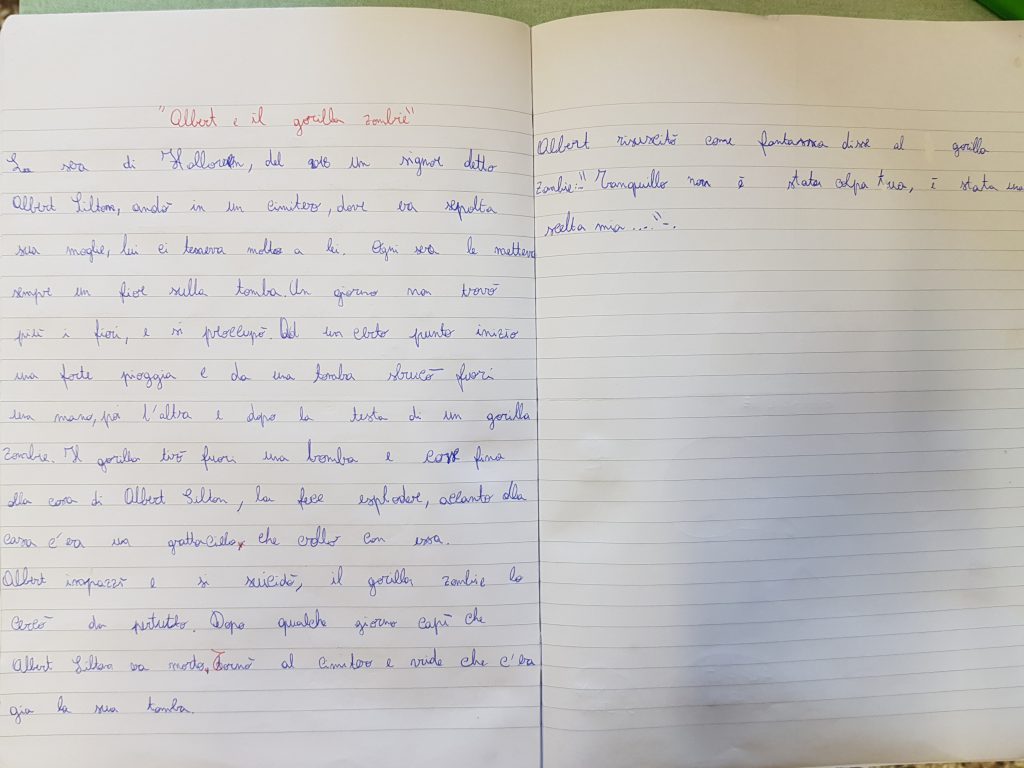 "Albert e il gorilla zombie"
La sera di Hallowen, del un signor detto
Albert Silton, andò in un cimitero, dove era sepolta
sua moglie, lui ci teneva molto a lei. Ogni sera le metteva
sempre un fiore sulla tomba. Un giorno non trovò
più i fiori, e si preoccupò. Ad un certo punto inizio
una forte pioggia e da una tomba sbucò fuori
una mano, poi l'altra e dopo la testa di un gorilla
zombie. Il gorilla tirò fuori una bomba e corse fino
alla casa di Albert Silton, la fece esplodere, accanto alla
casa c'era un grattacielo, che crollo con essa.
Albert impazzì e si suicidò, il gorilla zombie lo
cercò da pertutto. Dopo qualche giorno capì che
Albert Silton era morto, Tornò al cimitero e vide che c'era
gia la sua tomba.
Albert risuscitò come fantasma disse al gorilla
zombie:-"Tranquillo non è stata colpa tua, è stata una
scelta mia ...."-.